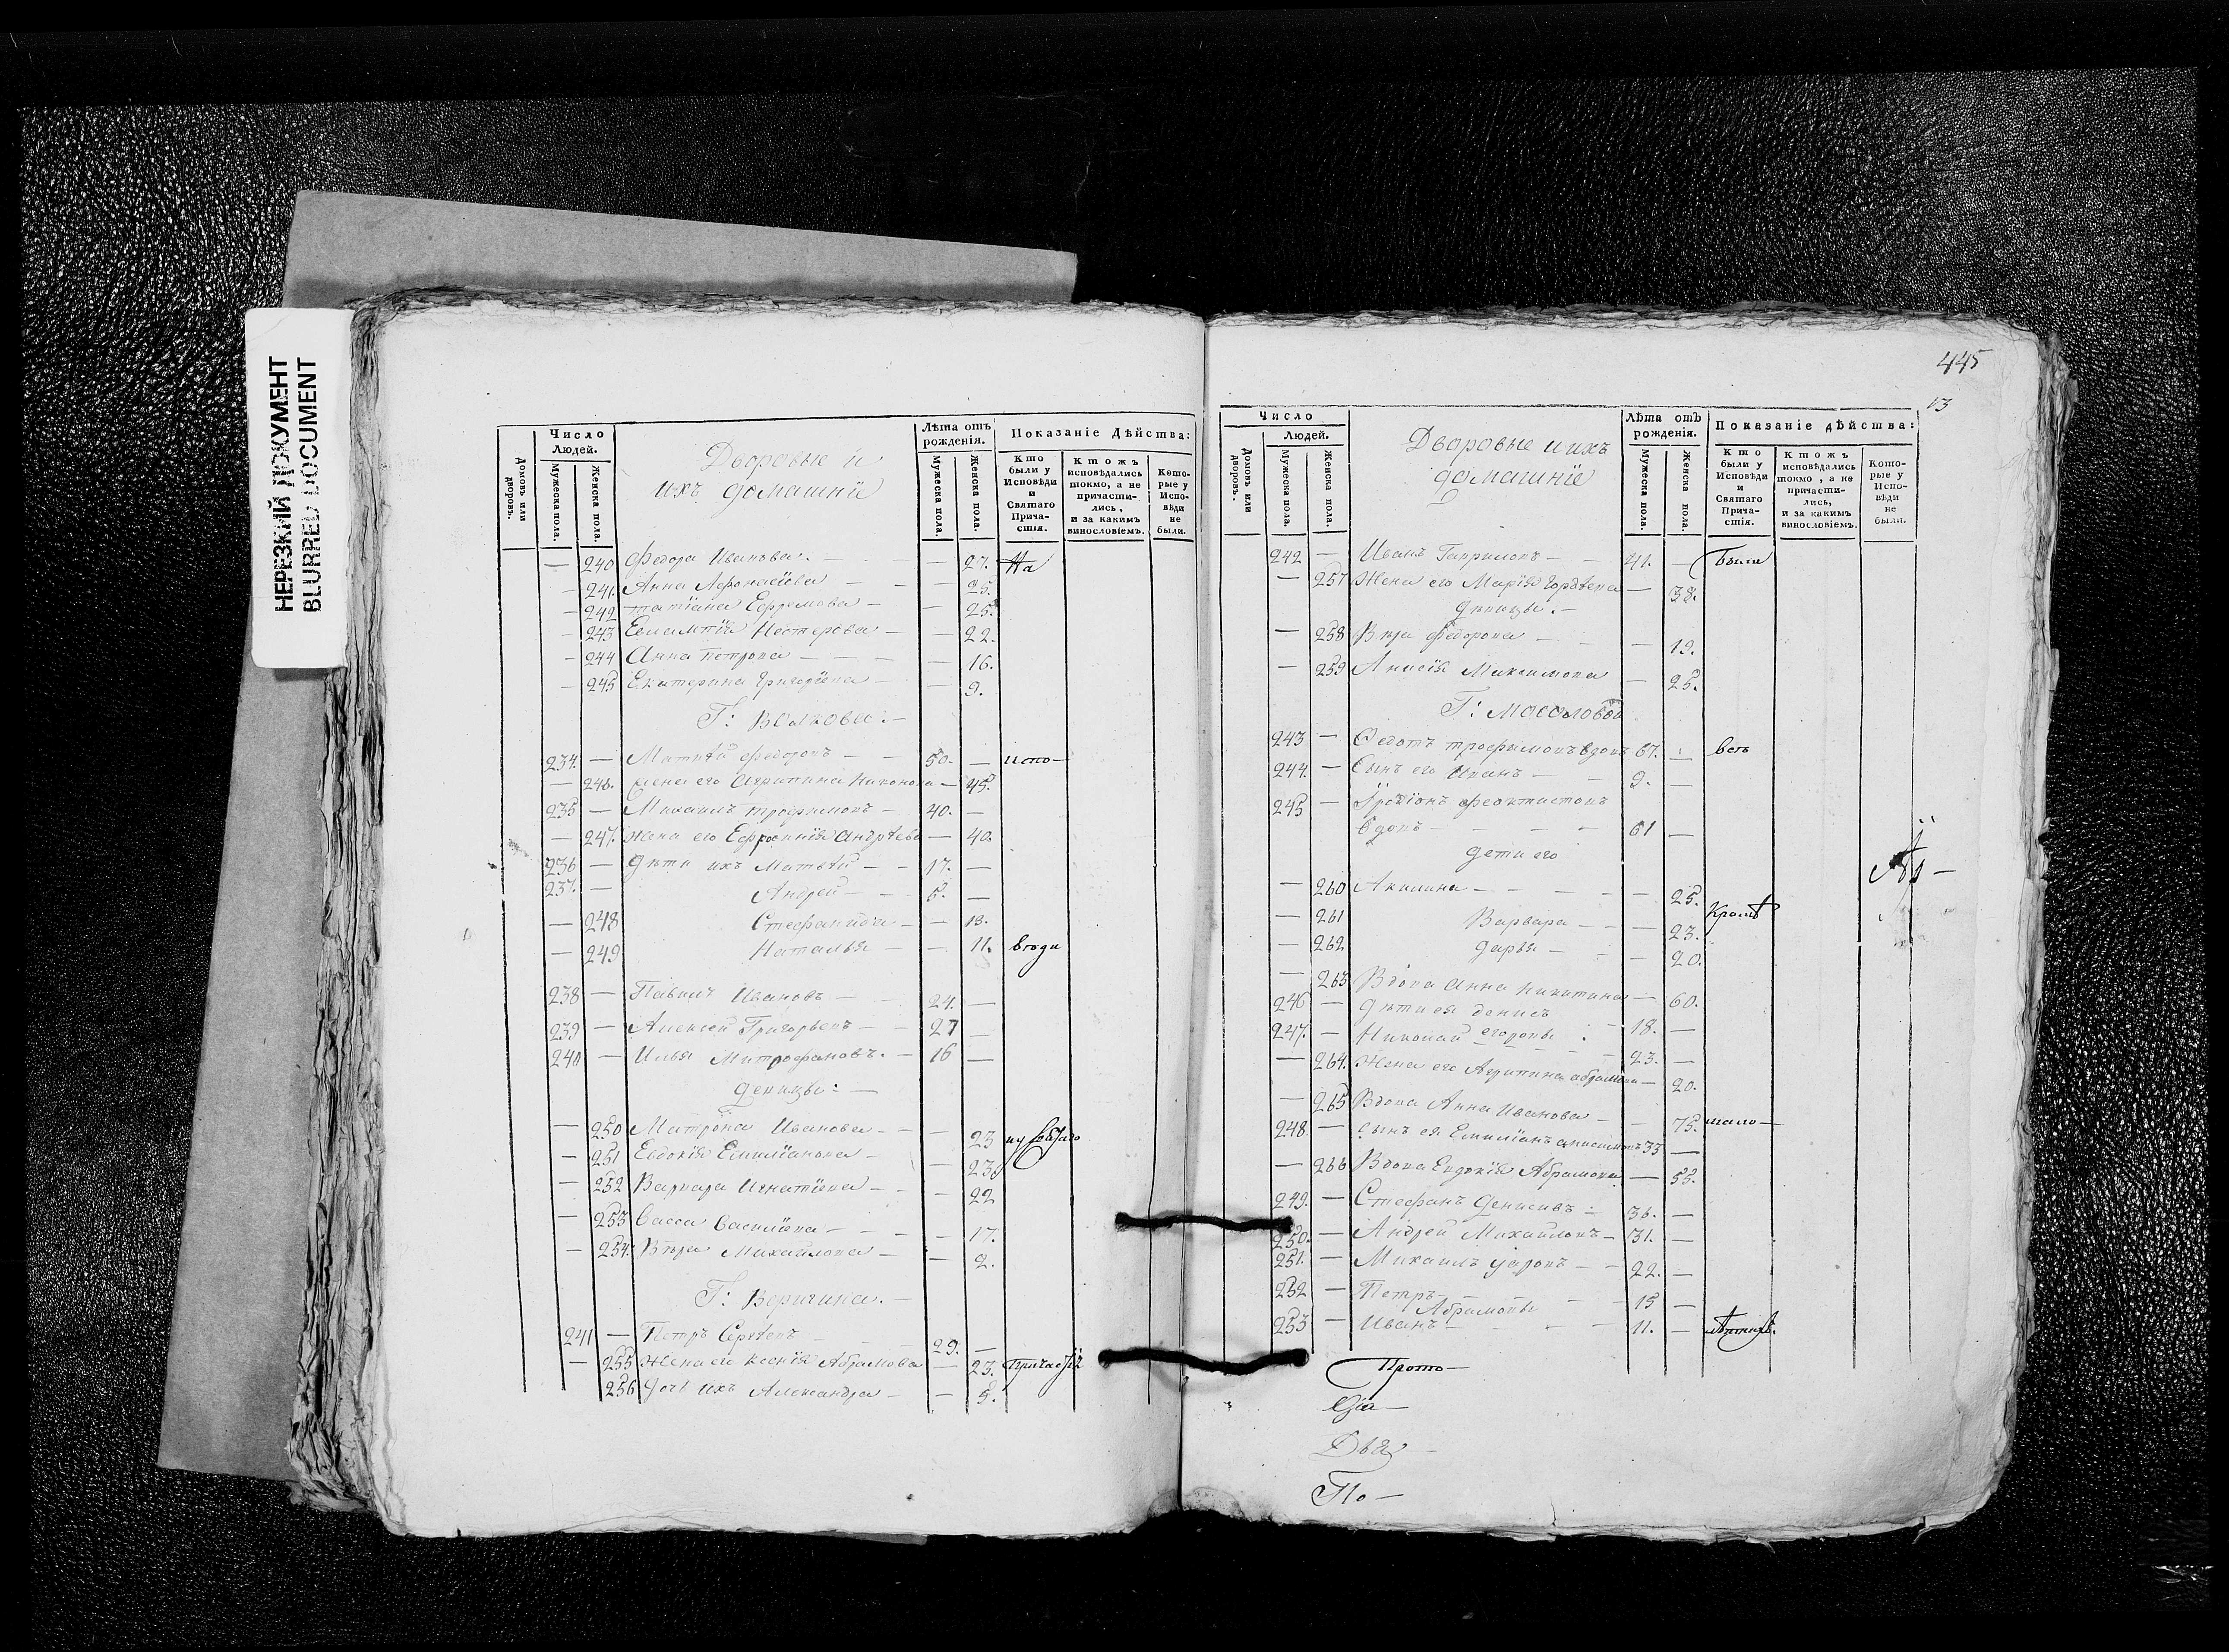 НЕРЕЗКИЙ ДОКУМЕНТ
BLURRED DOCUMENT
Число
Людей.
Домовъ или дворовъ.
Мужеска пола.
Женска пола.
Дворовые и
ихъ домашнїи
Лѣта отъ рожденїя.
Мужеска пола.
Женска пола.
Показанїе Дѣйства:
Кто были у Исповѣди и Святаго Прича-стїя.
Ктожъ исповѣдались токмо, а не причасти-лись, и за какимъ винословїемъ.
Кото-рые у Испо-вѣди не были.
— 240 Федора Иванова — — 27. На
— 241. Анна Афонасїева — — 25.
— 242 татїана Ефремова — — 25.
— 243 Евлампїя Нестерова — — 22.
— 244 Анна Петрова — — 16.
— 245 Екатерина Григорїева — — 9.
Г: Волкова: —
234. — Матвѣй Федоровъ — 50. — испо—
— 246. жена его Агрипина Никонова — 45.
235 — Михаилъ трофимовъ — 40. —
— 247. Жена его Ефросинїя Андрѣева — 40.
236 — Дѣти ихъ Матвѣй — 17. —
237. — Андрей — 6. —
— 248 Стефанида — — 18.
— 249 Наталья — — 11. вѣди
238 — Павелъ Ивановъ — 24. —
239 — Алексей Григорьевъ — 27 —
240 — Илья Митрофановъ. — 16 —
Девицы: —
— 250 Матрона Иванова — — 23
— 251 Евдокїя Емилїанова — — 23.
— 252 Варвара Игнатїева — — 22
— 253 Васса Василїева — — 17.
— 254. Вѣра Михайлова — — 2.
241 — Петръ Сергѣевъ — 29. —
— 255 Жена его Ксенїя Абрамова — 23.
256 Дочь ихъ Александра — — 5.
445
13
Число
Людей.
Домовъ или дворовъ.
Мужеска пола.
Женска пола.
Дворовые и ихъ
домашнїе
Лѣта отъ рожденїя.
Мужеска пола.
Женска пола.
Показанїе дѣйства:
Кто были у Исповѣди и Святаго Прича-стїя.
Ктожъ исповѣдались токмо, а не причасти-лись, и за какимъ винословїемъ.
Кото-рые у Испо-вѣди не были.
242 — Иванъ Гавриловъ — 41. — были
— 257 Жена его Марїя Гордѣева — 38.
Девицы. —
— 258 Вѣра Федорова — — 19.
— 259 Анисїя Максимова — 25.
Г: Мосоловой
243 — Федотъ трофимовъ вдовъ 67. — всѣ
244. — Сынъ его Иванъ — 9. —
245 — Їродїонъ Феоктистовъ
вдовъ — 61 —
Дети его
— 260 Акилина — — 25.
— 261 Варвара — — 23. Кромѣ
— 262 Дарья — — 20.
— 263 Вдова Анна Никитина — 60.
246 — Дѣти ея Денисъ 18. —
247. — Николай Егоровы 23. —
— 264. Жена его Агрипина абрамова — 20.
— 265 Вдова Анна Иванова — 75. мало—
248. — сынъ ея Емилїанъ анисимовъ 33 —
— 266 Вдова Евдокїя Абрамова — 55.
249. — Стефанъ Денисовъ 36. —
250. — Андрей Михайловъ — 31. —
251. — Михаилъ Уаровъ — 22. —
252 — Петръ — 15 —
Абрамовы
253 — Иванъ — 11. — лѣтнихъ.
Прото—
Дья—
По—